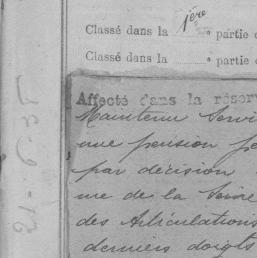 Classé dans la 1ère partie d
Classé dans la partie d
Affecté dans la réserv
Maintenu Servi
une pension pe
par décision
me de la Seine
des Articulations
derniers doigts
21-6-35